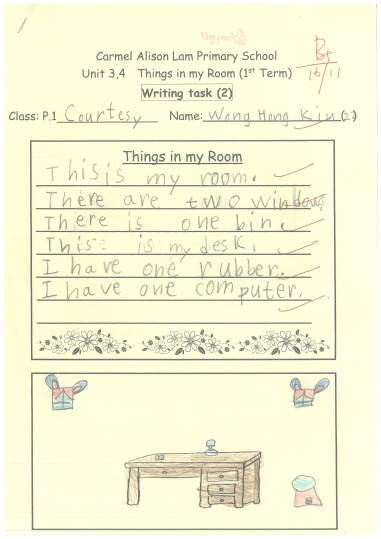 Very good!
Carmel Alison Lam Primary School
Unit 3,4 Things in my Room (1st Term)
Writing task (2)
16/11
Class: P.1 Courtesy Name: Wong Hong Kiu (23)
Things in my Room
This is my room.
There are two windows
There is one bin.
This is my desk.
I have one rubber.
I have one computer.